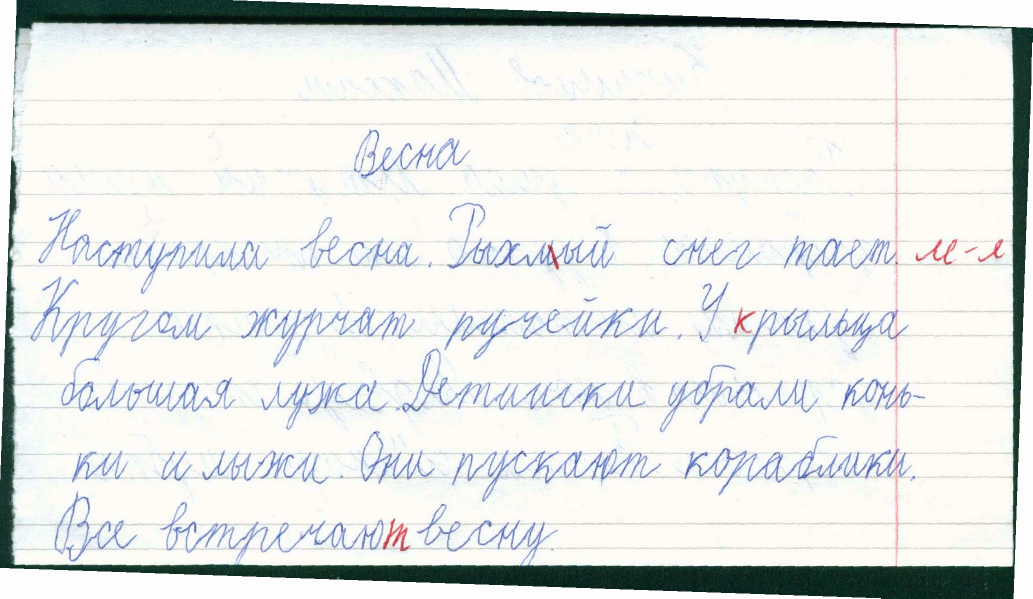 Весна
Наступила весна. Рыхмый снег тает. м-л
Кругом журчат ручейки. У крыльца
большая лужа. Детишки убрали конь-
ки и лыжи. Они пускают кораблики.
Все встречают весну.